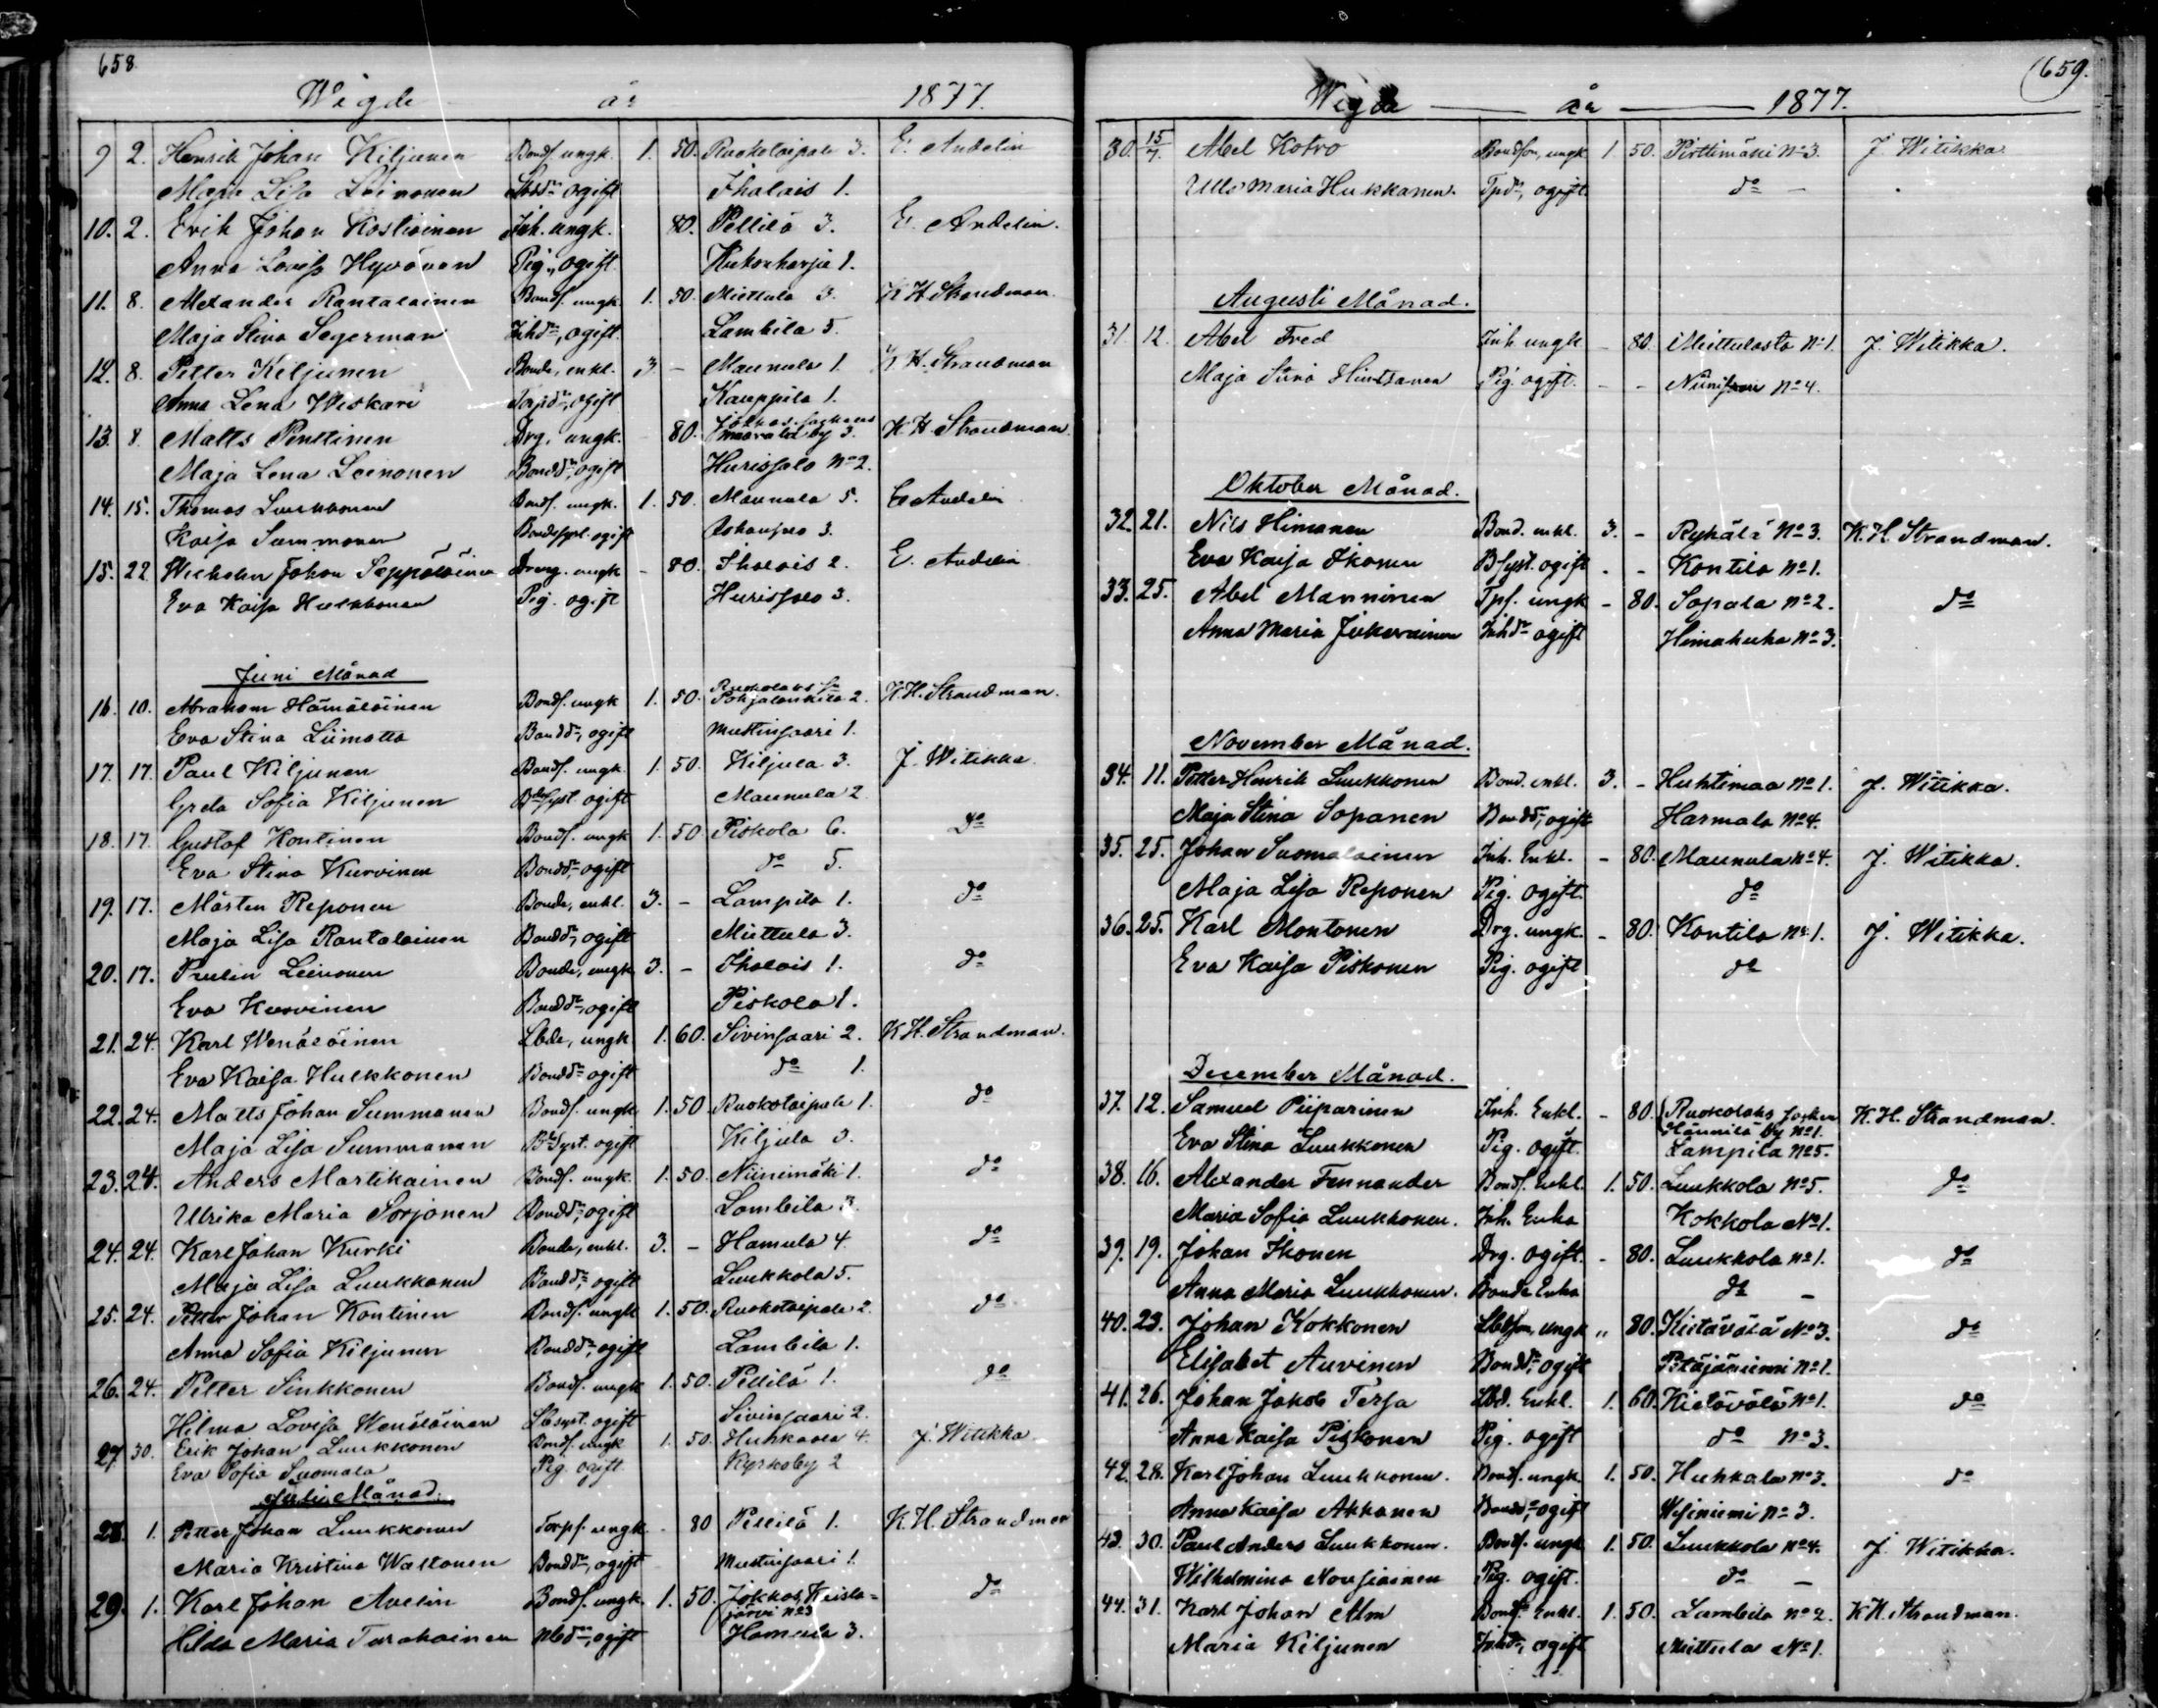 658
Wigde år 1877.
9 2. Henrik Johan Kiljunen Bonds. ungk. 1. 50. Ruokotaipale 3. E. Andelin
Maja Lisa Leinonen ogift Ihalais 1.
10. 2. Erik Johan Kostiainen Inh. ungk. 80. Pellilä 3. E. Andelin.
Anna Lovisa Hyvönen Pig., ogift Kukonharja 1.
11. 8. Alexander Rantalainen Bonds. ungk. 1. 50. Miettula 3. K H Strandman.
Maja Stina Segerman Inhdr, ogift Lambila 5.
12. 8. Petter Kiljunen Bonde, enkl. 3 - Maunula 1. K. H. Strandman
Anna Lena Wiskari Torpdr, ogift Kauppila 1.
13. 8. Matts Penttinen Drg. ungk. 80. by 3. K. H. Strandman.
Maja Lena Leinonen Bonddr, ogift Hurissalo No 2.
14. 15. Thomas Luukkonen Bonds. ungk. 1. 50. Maunula 5. E Andelin
Kaisa Summanen ogift 3.
15. 22. Johan Seppäläinen Dreng. ungk - 80. Ihalais 2. E. Andelin
Eva Kaisa Hulkkonen Pig. ogift Hurissalo 3.
Juni Månad
16. 10. Abraham Hämäläinen Bonds. ungk 1. 50. Pohjalankila 2. K. H. Strandman.
Eva Stina Liimatta Bonddr, ogift Mustinsaari 1.
17. 17. Paul Kiljunen Bonds. ungk. 1. 50. Kiljula 3. J. Witikka.
Greta Sofia Kiljunen ogift Maunula 2
18. 17. Gustaf Kontinen Bonds. ungk 1. 50 Piskola 6. do
Eva Stina Kurvinen Bonddr, ogift do 5.
19. 17. Mårten Reponen Bonde, enkl. 3. - Lampila 1. do
Maja Lisa Rantalainen Bonddr, ogift Miettula 3.
20. 17. Paulin Leinonen Bonde, ungk 3. - Ihalais 1. do
Eva Kurvinen Bonddr, ogift Piskola 1.
21. 24. Karl Wenäläinen Lbde, ungk 1. 60. Sivinsaari 2. K H. Strandman.
Eva Kaisa Hulkkonen Bonddr ogift do 1.
22. 24. Matts Johan Summanen Bonds. ungk 1. 50 Ruokotaipale 1. do
Maja Lisa Summanen ogift Kiljula 3.
23. 24. Anders Martikainen Bonds. ungk. 1. 50. Niinimäki 1. do
Ulrika Maria Sorjonen Bonddr, ogift Lambila 3.
24. 24. Karl Johan Kurki Bonde, enkl. 3. - Hamula 4. do
Maja Lisa Luukkonen Bonddr, ogift Luukkola 5.
25. 24. Petter Johan Kontinen Bonds. ungk 1. 50. Ruokotaipale 2. do
Anna Sofia Kiljunen Bonddr, ogift Lambila 1.
26. 24. Petter Sinkkonen Bonds. ungk 1. 50. Pellilä 1. do
Hilma Lovisa Wenäläinen Lbsyst. ogift Sivinsaari 2.
27. 30. Erik Johan Luukkonen Bonds. ungk 1. 50. Huhkaala 4. J. Witikka
Eva Sofia Suomala Pig. ogift Kyrkoby 2
Juli Månad.
28. 1. Petter Johan Luukkonen Torps. ungk - 80 Pellilä 1. K. H. Strandman
Maria Kristina Waltonen Bonddr, ogift Mustinsaari 1.
29. 1. Karl Johan Avelin Bonds. ungk. 1. 50. Jokkas, järvi No 3 do
Hilda Maria Turakainen ogift Hamula 3.
659.
Wigde år 1877.
30. 15/7. Abel Kotro Bondson, ungk 1. 50. Pirttimäki No 3. J. Witikka.
Ulla Maria Hukkanen. Tpdr, ogift. do -
Augusti Månad.
31. 12. Abel Fred Inh. ungk - 80. Miettulasta No 1. J. Witikka.
Maja Stina Hintsanen Pig. ogift. - - No 4.
Oktober Månad.
32. 21. Nils Himanen Bond. enkl. 3. - Rykälä No 3. K. H. Strandman.
Eva Kaisa Ikonen Bsyst. ogift - - Kontila No 1.
33. 25. Abel Manninen Tps. ungk - 80. Sopala No 2. do
Anna Maria Jukarainen Inhdr ogift Himahuha No 3.
November Månad.
34. 11. Petter Henrik Luukkonen Bond. enkl. 3. - Huhtimaa No 1. J. Witikka.
Maja Stina Sopanen Bonddr, ogift Harmala No 4.
35. 25. Johan Suomalainen Inh. Enkl. - 80. Maunula No 4. J. Witikka.
Maja Lisa Reponen Pig. ogift. do
36. 25. Karl Montonen Drg. ungk. - 80. Kontila No 1. J. Witikka.
Eva Kaisa Piskonen Pig. ogift do
December Månad.
37. 12. Samuel Piiparinen Inh. Enkl. - 80. Ruokolaks Socken K. H. Strandman.
by No 1.
Eva Stina Luukkonen Pig. ogift. Lampila No 5.
38. 16. Alexander Fennander Bonds. Enkl. 1. 50. Luukkola No 5. do
Maria Sofia Luukkonen. Inh. Enka Kokkola No 1.
39. 19. Johan Ikonen Drg. ogift. - 80. Luukkola No 1. do
Anna Maria Luukkonen. Bonde Enka do -
40. 23. Johan Kokkonen Lbdson, ungk „ 80. Kietävälä No 3. do
Elisabet Auvinen Bonddr, ogift Pitäjäniemi No 1.
41. 26. Johan Jakob Tersa Lbd. Enkl. 1. 60. Kietävälä No 1. do
Anna Kaisa Piskonen Pig. ogift do No 3.
42. 28. Karl Johan Luukkonen. Bonds. ungk 1. 50. Huhkala No 3. do
Anna Kaisa Akkanen Bonddr ogift Wesiniemi No 3.
43. 30. Paul Anders Luukkonen. Bonds. ungk 1. 50. Luukkola No 4. J. Witikka.
Wilhelmina Nousiainen Pig. ogift. do -
44. 31. Karl Johan Alm Bonds. Enkl. 1. 50. Lambila No 2. K H. Strandman.
Maria Kiljunen Inhdr, ogift Miettula No 1.